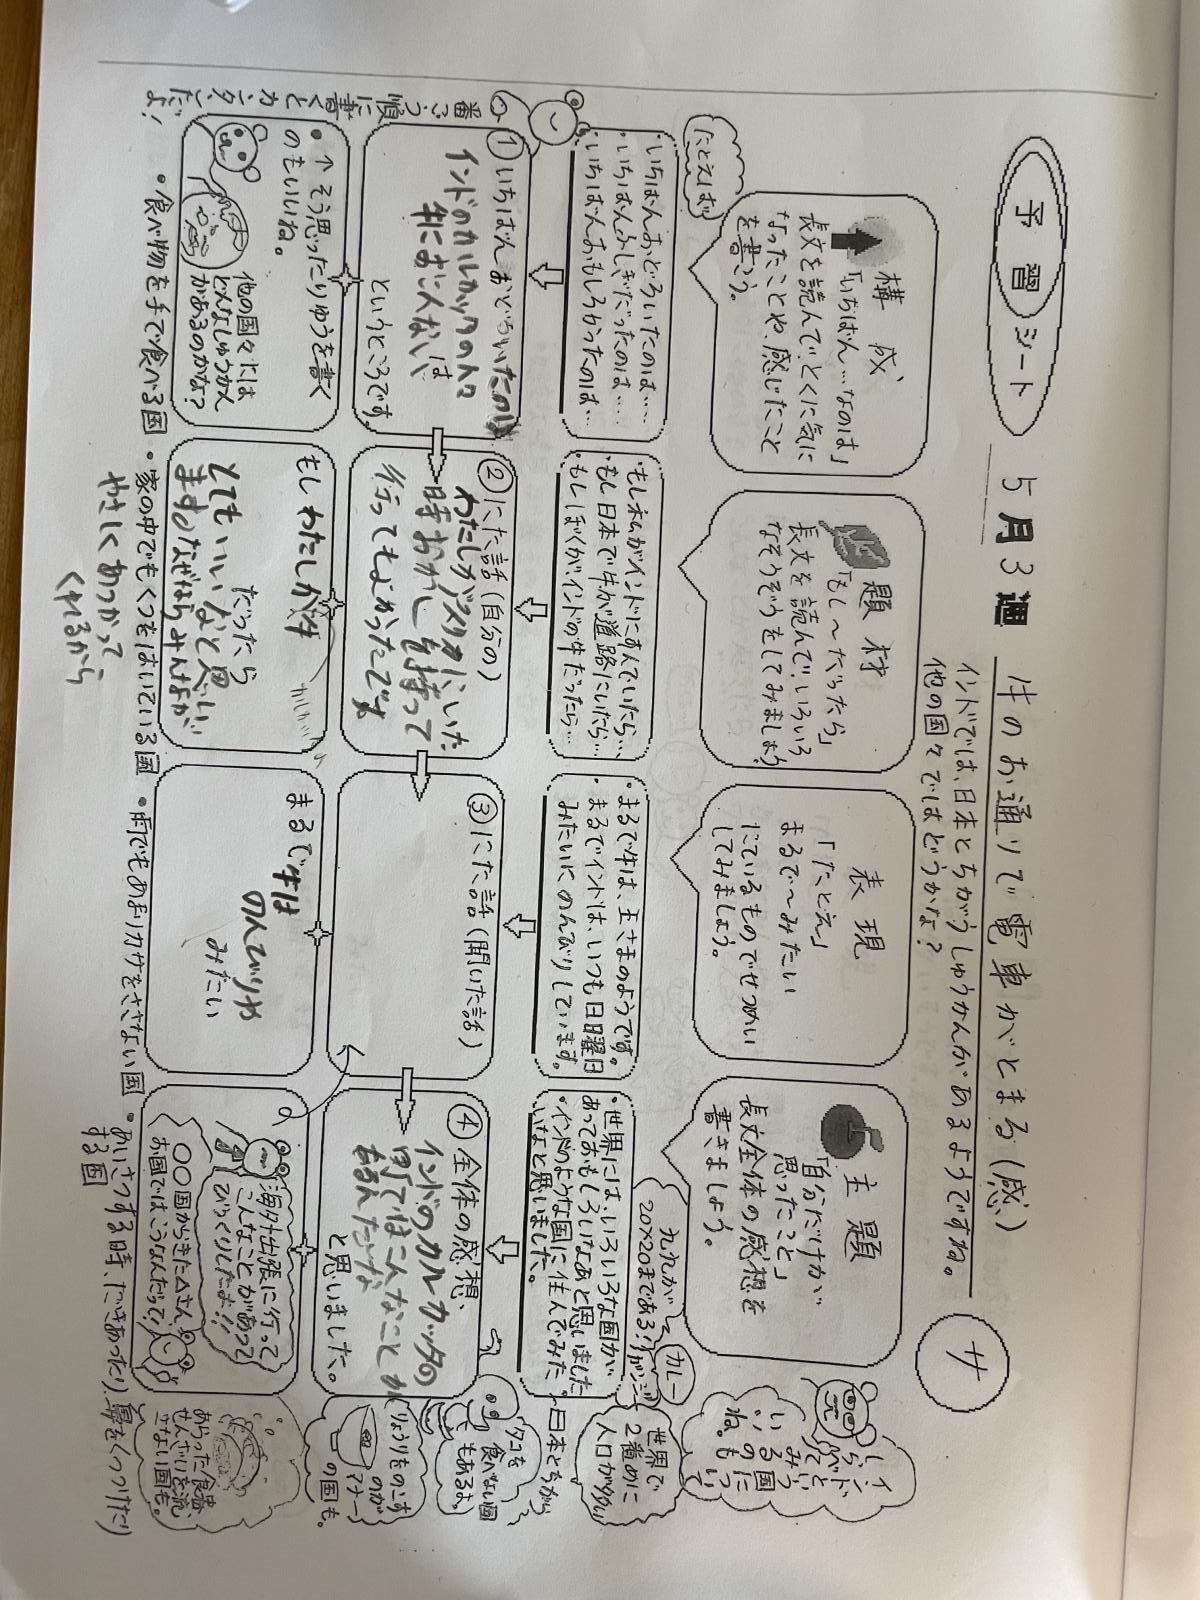 予習シート
5月3週
牛のお通りで電車がとまる(感)
サ
インドでは、日本とちがうしゅうかんがあるようですね。
他の国々ではどうかな?
構成
「いちばん…なのは」
長文を読んで、とくに気に
なったことや、感じたこと
を書こう。
題材
「もし〜だったら」
長文を読んで、いろいろ
なそうぞうをしてみましょう
表現
「たとえ」
まるで〜みたい
にているものでせつめい
してみましょう。
主題
「自分だけが
思ったこと」
長文全体の感想を
書きましょう。
たとえば
・いちばんおどろいたのは……
・いちばんふしぎだったのは……
・いちばんおもしろかったのは…
・もし私がインドにすんでいたら…
・もし日本で牛が道路にいたら…
・もしぼくがインドの牛だったら…
・まるで牛は、王さまのようです。
・まるでインドは、いつも日曜日
みたいにのんびりしています。
・世界には、いろいろな国が
あっておもしろいなあと思いました
・インドのような国に住んでみた
いなと思いました。
九九が
20×20まである!
カレー
世界で
2番めに
人口が多い
①いちばんおどろいたのは
インドのカルカッタの人々は
というところです。
②にた話(自分の)
わたしが
行ってもよかったです
③にた話(聞いた話)
④全体の感想、
インドのカルカッタの
町ではこんなことが
あるんだな
と思いました。
タコを
食べない国
もあるよ。
りょうりをのこす
のが
マナー
の国も。
・↑そう思ったりゆうを書く
のもいいね。
他の国々には
どんなしゅうかん
があるのかな?
もしわたしが牛
だったら
とてもいいなと思い
ます。なぜならみんなが
やさしくあつかって
くれるから
まるで牛は
のんびりや
みたい
海外出張に行って
こんなことがあって
びっくりしたよ!!
〇〇国からきた△さん
お国ではこうなんだって!
あらった食器、
せんざいを流
さない国も。
・食べ物を手で食べる国
・家の中でもくつをはいている国
・雨でもあまりカサをささない国
・あいさつする時、だきあったり、鼻をくっつけたり
する国